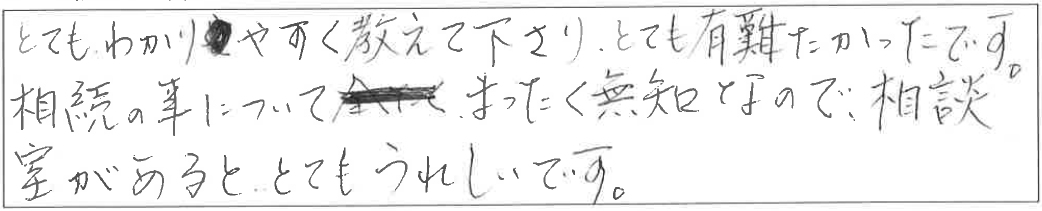 とてもわかりやすく教えて下さり、とても有難たかったです。
相続の事について まったく無知なので、相談
室があると とてもうれしいです。